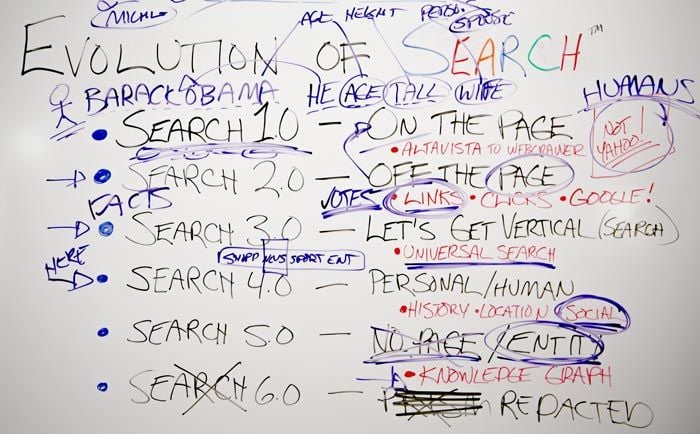 MICHL
AGE HEIGHT PERSON SPOUSE
EVOLUTION OF SEARCH ™
BARACK OBAMA HE AGE TALL WIFE HUMANS
• SEARCH 1.0 — ON THE PAGE
• ALTAVISTA TO WEBCRAWLER
NOT! YAHOO!
• SEARCH 2.0 — OFF THE PAGE
FACTS VOTES • LINKS • CLICKS • GOOGLE!
• SEARCH 3.0 — LET'S GET VERTICAL (SEARCH)
• UNIVERSAL SEARCH
HERE NEWS SPORT ENT
• SEARCH 4.0 — PERSONAL/HUMAN
• HISTORY • LOCATION • SOCIAL
• SEARCH 5.0 — NO PAGE /ENTITY
• KNOWLEDGE GRAPH
• SEARCH 6.0 — REDACTED